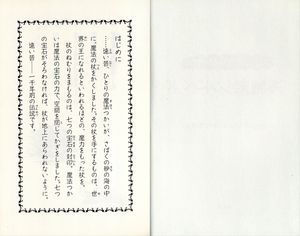 はじめに
……遠い昔、ひとりの魔法つかいが、さばくの砂の海の中
に、魔法の杖をかくしました。その杖を手にするものは、世
界の王になれるといわれるほどの、魔力をもった杖を。
杖のねむりをまもるのは、七つの宝石の封印。魔法つか
いは魔法の宝石の力で、空間を閉じてかぎをしました。七つ
の宝石がそろわなければ、杖が地上にあらわれないように。
遠い昔――一千年前の伝説です。